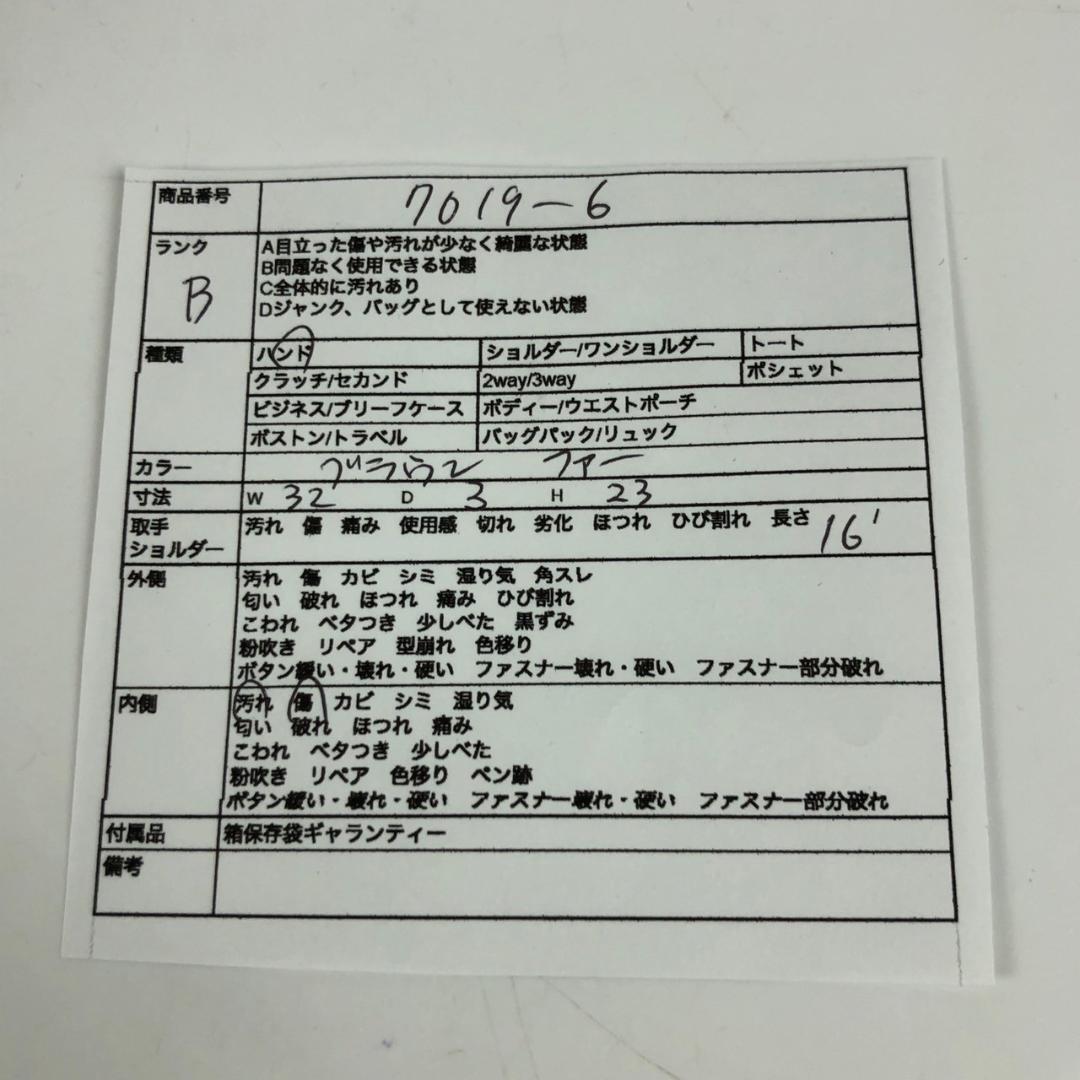 商品番号 7019-6
ランク A目立った傷や汚れが少なく綺麗な状態
B問題なく使用できる状態
B C全体的に汚れあり
Dジャンク、バッグとして使えない状態
種類 ハンド ショルダー/ワンショルダー トート
クラッチ/セカンド 2way/3way ポシェット
ビジネス/ブリーフケース ボディー/ウエストポーチ
ボストン/トラベル バッグパック/リュック
カラー ブラウン ファー
寸法 W 32 D 3 H 23
取手 汚れ 傷 痛み 使用感 切れ 劣化 ほつれ ひび割れ 長さ 16
ショルダー
外側 汚れ 傷 カビ シミ 湿り気 角スレ
匂い 破れ ほつれ 痛み ひび割れ
こわれ ベタつき 少しべた 黒ずみ
粉吹き リペア 型崩れ 色移り
ボタン緩い・壊れ・硬い ファスナー壊れ・硬い ファスナー部分破れ
内側 汚れ 傷 カビ シミ 湿り気
匂い 破れ ほつれ 痛み
こわれ ベタつき 少しべた
粉吹き リペア 色移り ペン跡
ボタン緩い・壊れ・硬い ファスナー壊れ・硬い ファスナー部分破れ
付属品 箱保存袋ギャランティー
備考